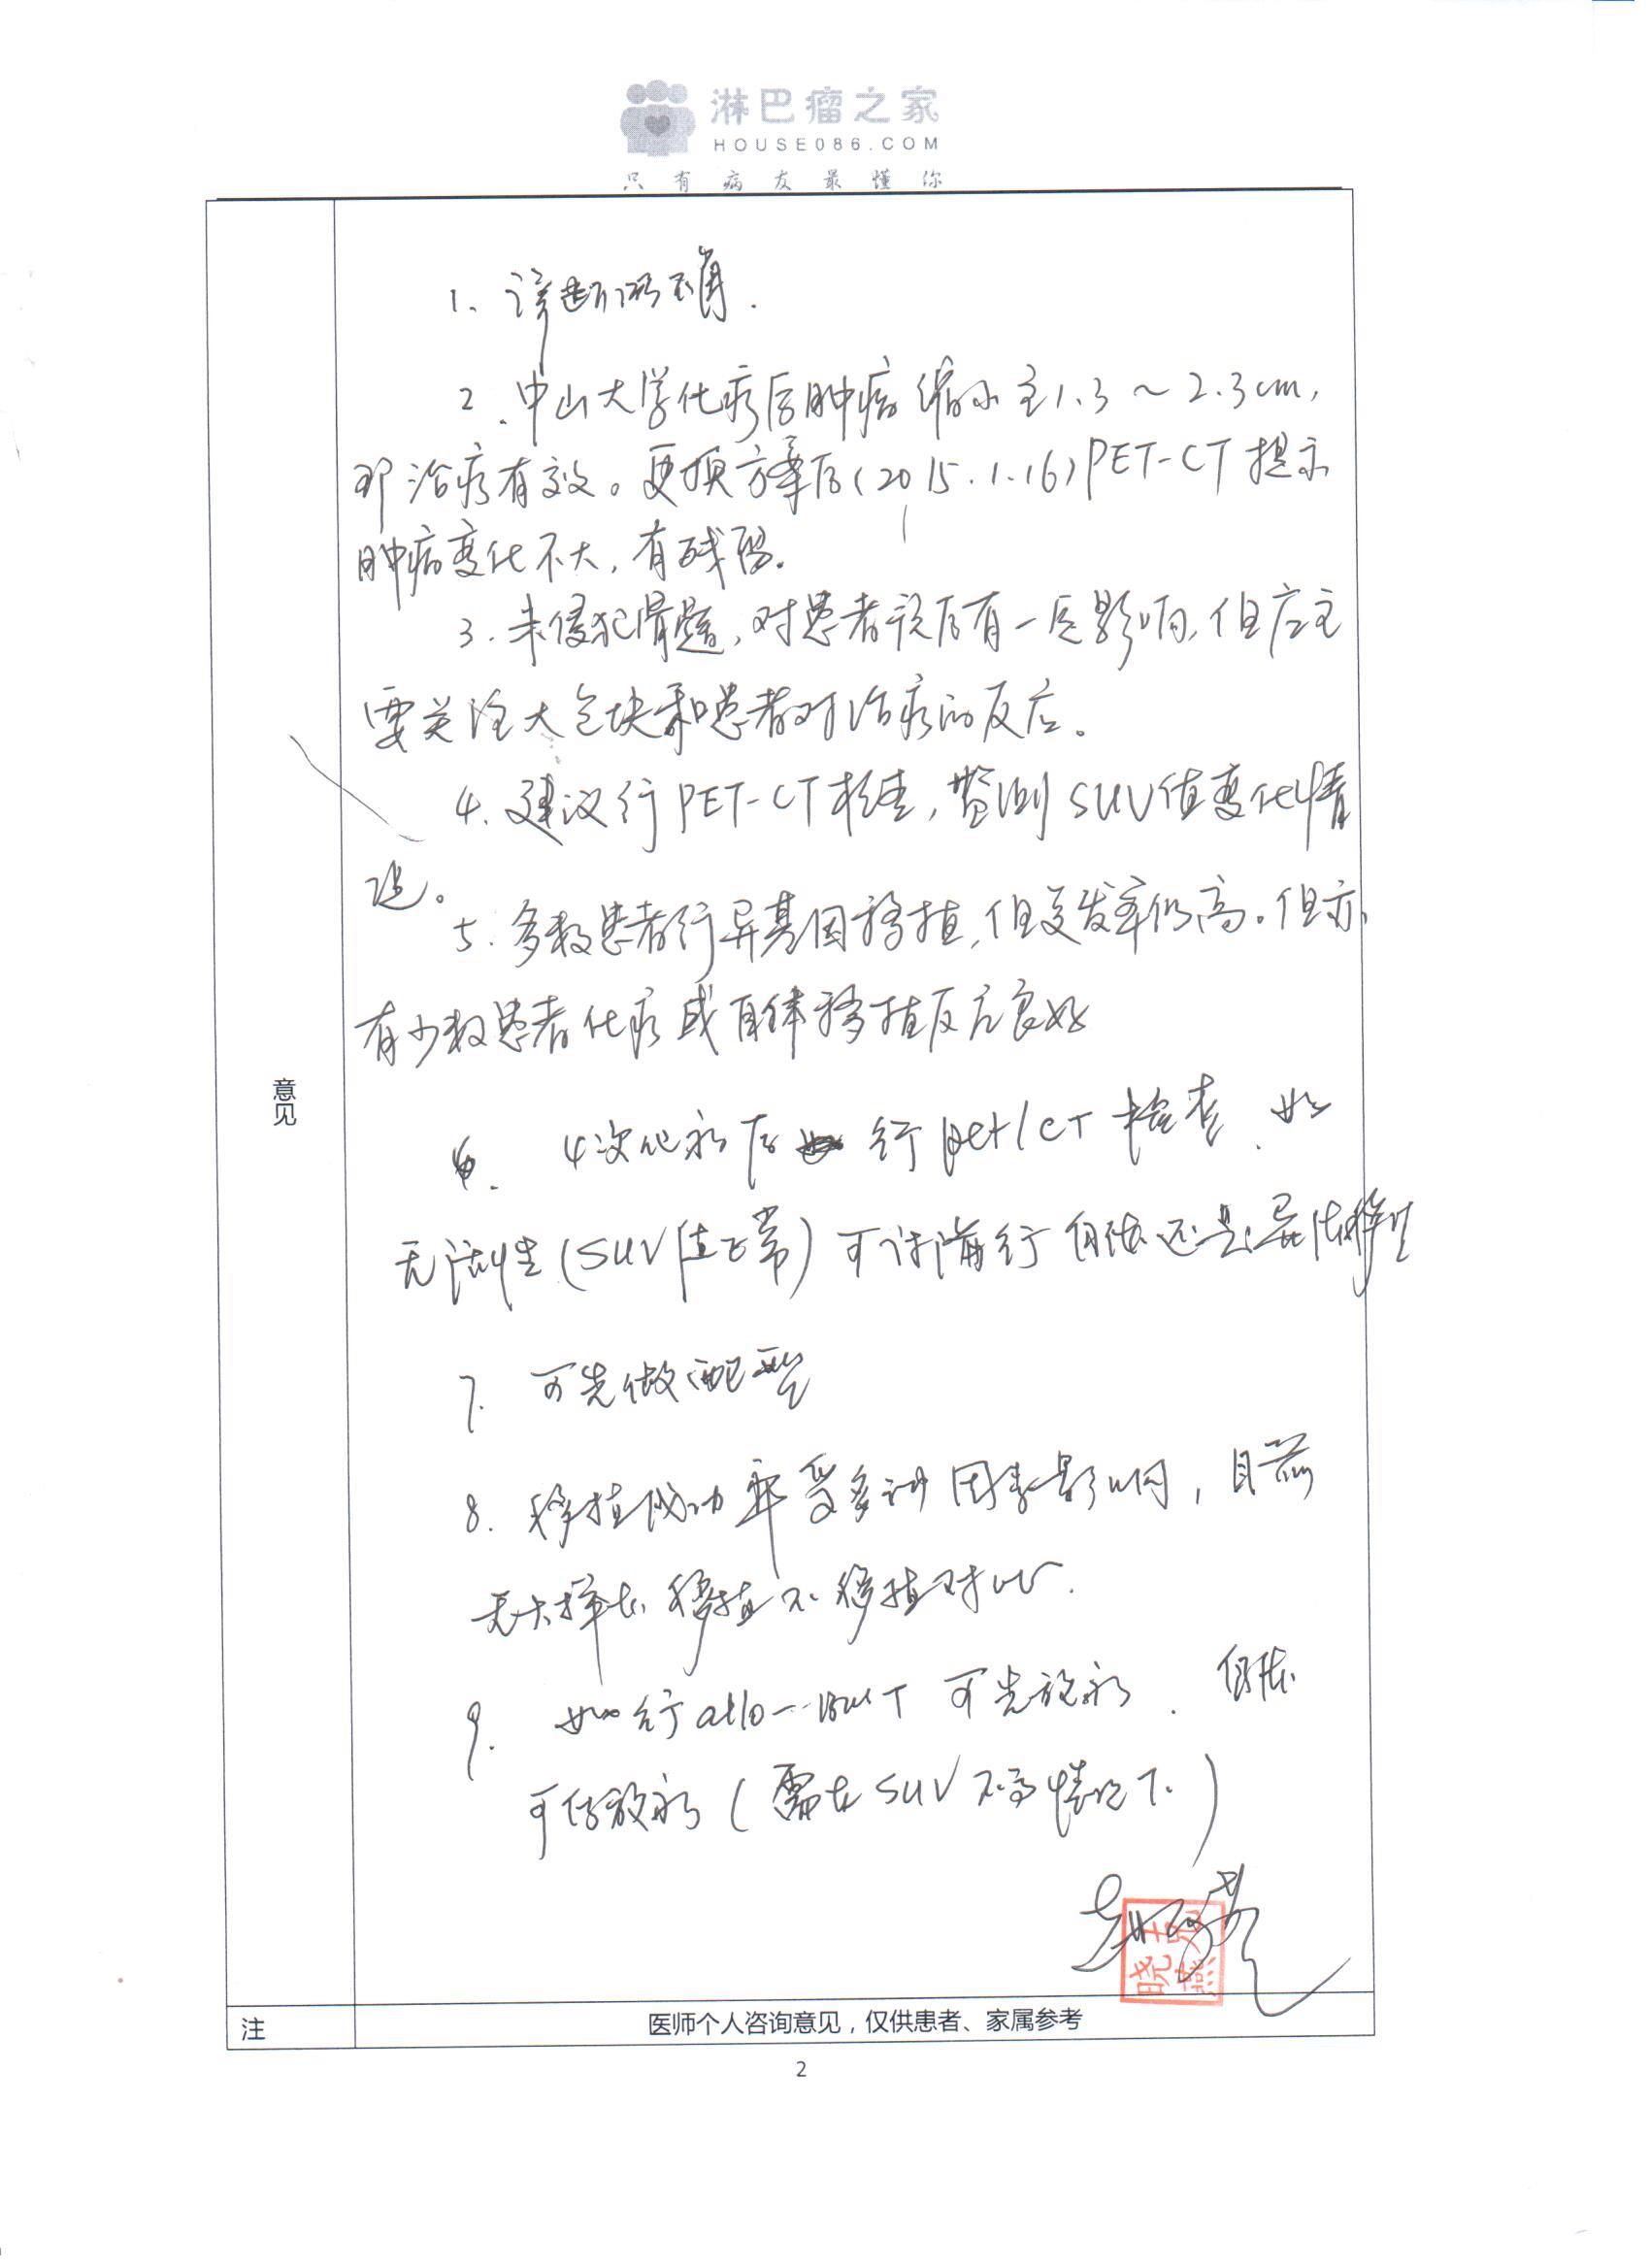 淋巴瘤之家
HOUSE086.COM
只有病友最懂你
1、诊断明确.
2、中山大学化疗后肿瘤缩小至1.3～2.3cm,
即治疗有效。更换方案后(2015.1.16)PET-CT提示
肿瘤变化不大,有残留.
3.未侵犯骨髓,对患者预后有一定影响,但应主
要关注大包块和患者对治疗的反应。
4.建议行PET-CT检查,监测SUV值变化情
况。
5.多数患者行异基因移植,但复发率仍高。但亦
有少数患者化疗或自体移植反应良好
意见
4次化疗后行pet/CT检查.如
无活性(SUV值正常)可讨论行自体还是异体移植
7.可先做配型
8.移植成功率受多种因素影响,目前
无大样本移植不移植对比.
9.如行allo-BMT可先放疗.自体
可后放疗(需在SUV不高情况下)
注
医师个人咨询意见，仅供患者、家属参考
2